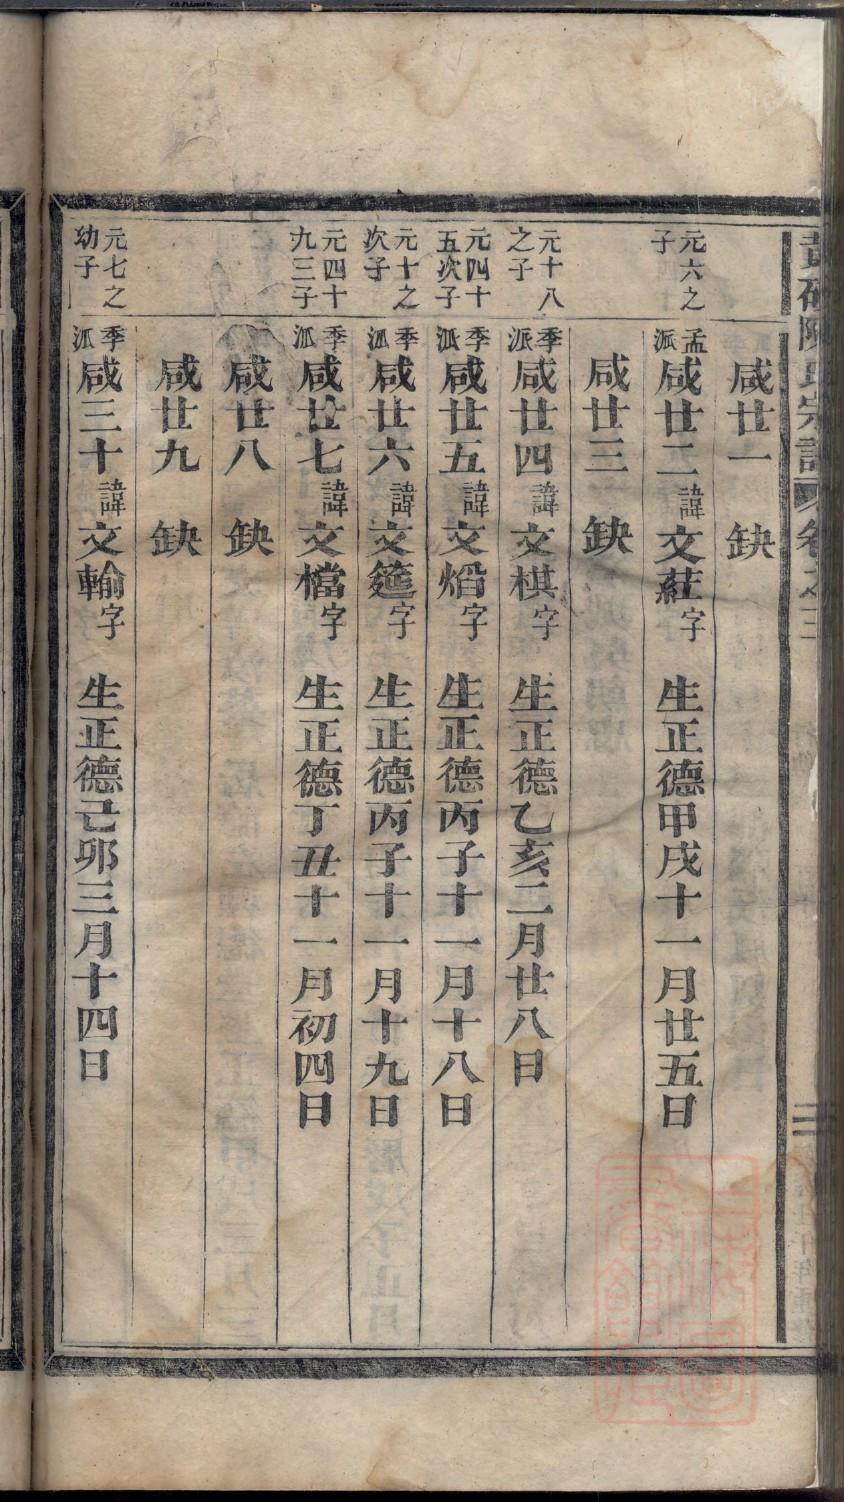 陳氏宗譜 卷之三
咸廿一 缺
元六之子 孟派 咸廿二 諱文紝字 生正德甲戌十一月廿五日
咸廿三 缺
元十八之子 季派 咸廿四 諱文棋字 生正德乙亥二月廿八日
元四十五次子 季派 咸廿五 諱文焰字 生正德丙子十一月十八日
元十之次子 季派 咸廿六 諱文筵字 生正德丙子十一月十九日
元四十九三子 季派 咸廿七 諱文檔字 生正德丁丑十一月初四日
咸廿八 缺
咸廿九 缺
元七之幼子 季派 咸三十 諱文輸字 生正德己卯三月十四日